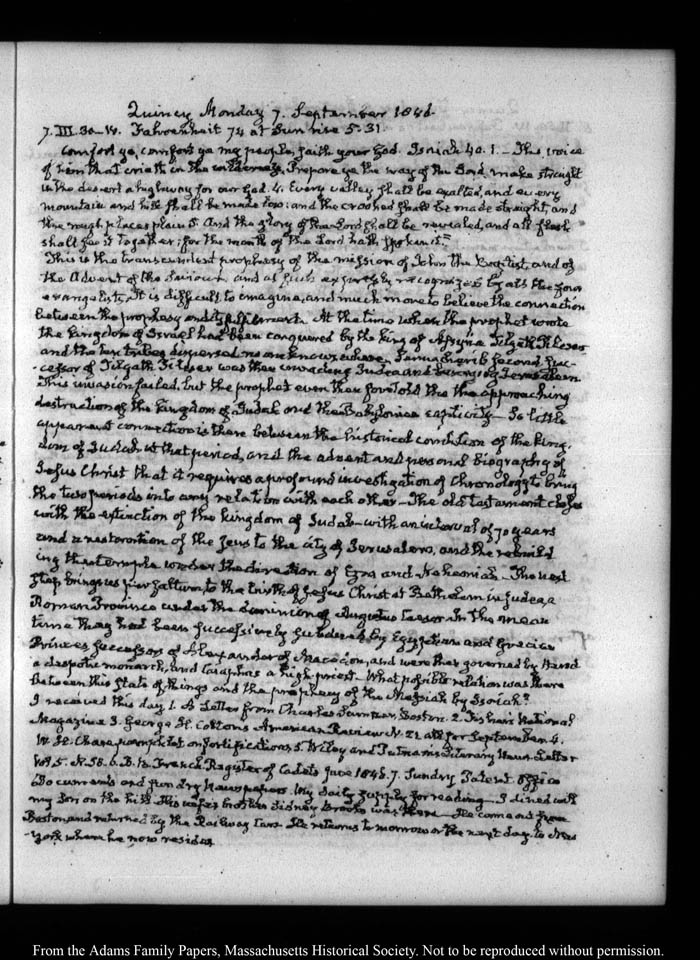 Quincy Monday 7. September 1846.
7. III.30-IV. Fahrenheit 74 at Sun rise 5.31
Comfort ye, comfort ye my people, saith your God. Isaiah 40. 1. - The voice
of him that crieth in the wilderness, Prepare ye the way of the Lord, make straight
in the desert a highway for our God. 4. Every valley shall be exalted, and every
mountain and hill shall be made low: and the crooked shall be made straight, and
the rough places plain 5. And the glory of the Lord shall be revealed, and all flesh
shall see it together; for the mouth of the Lord hath spoken it."
This is the transcendent prophesy of the mission of John the Baptist, and of
the Advent of the Saviour and as such expressly recognized by all the four
evangelists, It is difficult to imagine, and much more to believe the connection
between the prophesy and its fulfilment. At the time when the prophet wrote
the kingdom of Israel had been conquered by the king of Assyria Tilgath Pileser
and the ten tribes dispersed no one knows where. Sennacherib second Suc-
cessor of Tilgath Pileser was then invading Judea and besieging Jerusalem
This invasion failed, but the prophet even then foretold the the approaching
destruction of the kingdom of Judah and the Babylonian captivity - So little
apparent connection is there between the historical condition of the king-
dom of Judah at that period, and the advent and personal biography of
Jesus Christ that it requires a profound investigation of Chronology to bring
the two periods into any relation with each other - The old testament closes
with the extinction of the kingdom of Judah - with an interval of 70 years
and a restoration of the Jews to the city of Jerusalem, and the rebuild
ing the temple under the direction of Ezra and Nehemiah. The next
step brings us per saltum, to the birth of Jesus Christ at Bethlem in Judea, a
Roman Province under the dominion of Augustus Caesar. In the mean
time they had been successively subdued by Egyptian and Grecian
Princes successors of Alexander of Macedon, and were then governed by Herod
a despotic monarch, and Caiaphas a high priest. What possible relation was there
between this state of things and the prophesy of the Messiah by Isaiah?
I received this day 1. A Letter from Charles Sumner, Boston. 2. Fisher's National
Magazine 3. George H. Colton's American Review N. 21 all for September 4.
W. H. Chase pamphlet on fortifications 5. Wiley and Putnam's Literary News-Letter
Vol 5. N. 58. 6. B. B. French Register of Cadets June 1846. 7. Sundry Patent office
Documents and sundry Newspapers. My daily supply for reading - I dined with
my Son on the hill. His wife's brother Sidney Brooks was there - He came out from
Boston and returned by the Railway Cars. He returns to morrow or the next day to New
York where he now resides
From the Adams Family Papers, Massachusetts Historical Society. Not to be reproduced without permission.